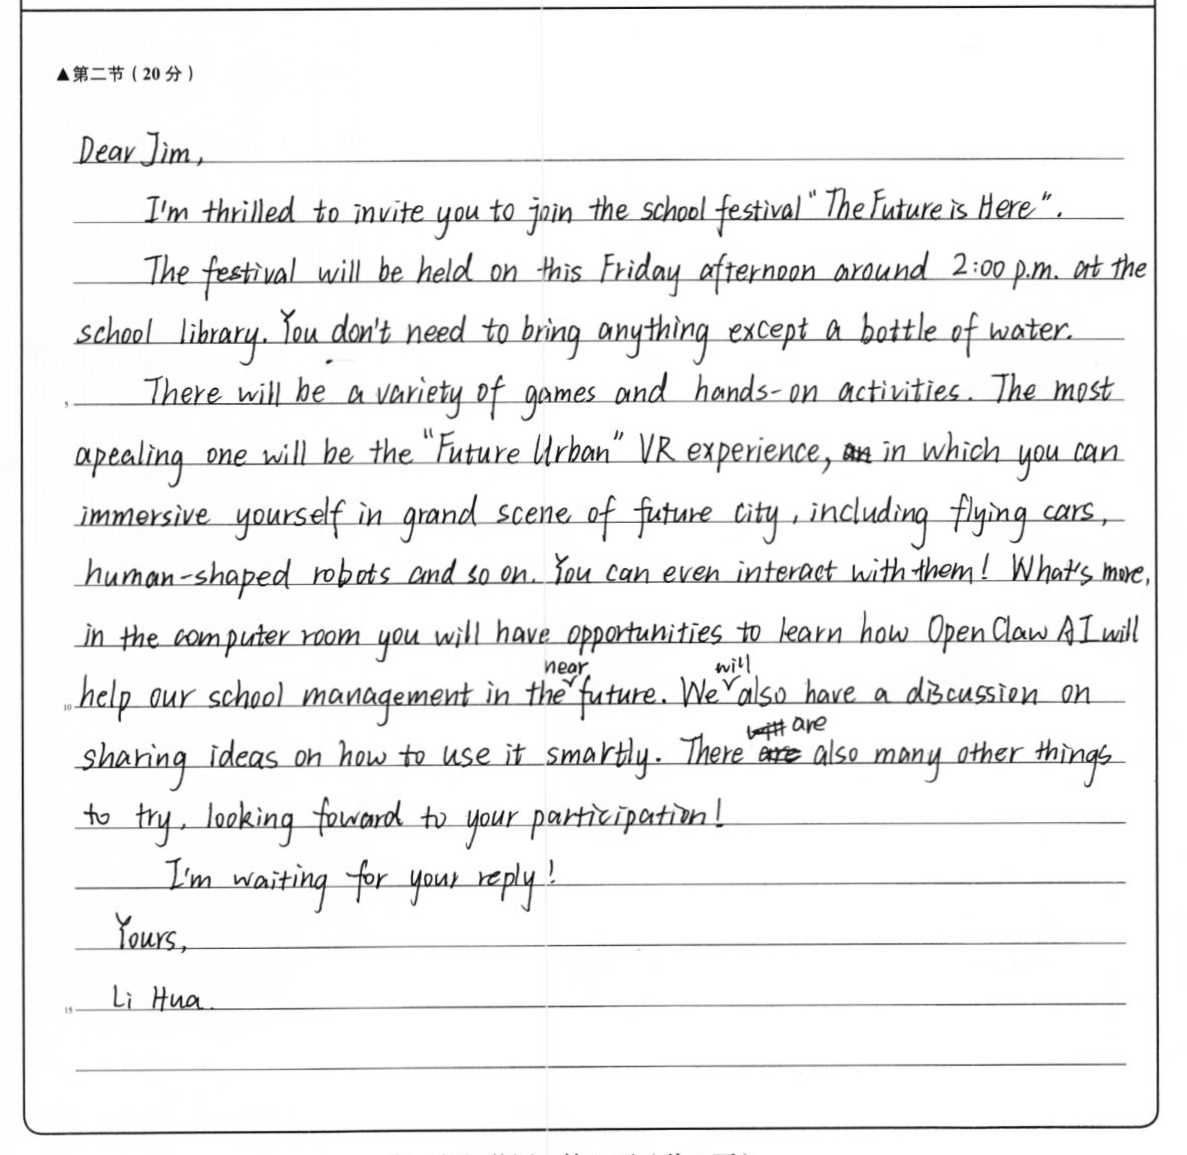 ▲第二节(20分)
Dear Jim,
I'm thrilled to invite you to join the school festival "The Future is Here".
The festival will be held on this Friday afternoon around 2:00 p.m. at the
school library. You don't need to bring anything except a bottle of water.
5 There will be a variety of games and hands-on activities. The most
apealing one will be the "Future Urban" VR experience, in which you can
immersive yourself in grand scene of future city, including flying cars,
human-shaped robots and so on. You can even interact with them! What's more,
in the computer room you will have opportunities to learn how OpenClaw AI will
10 help our school management in the near future. We will also have a discussion on
sharing ideas on how to use it smartly. There are also many other things
to try, looking foward to your participation!
I'm waiting for your reply!
Yours,
15 Li Hua.